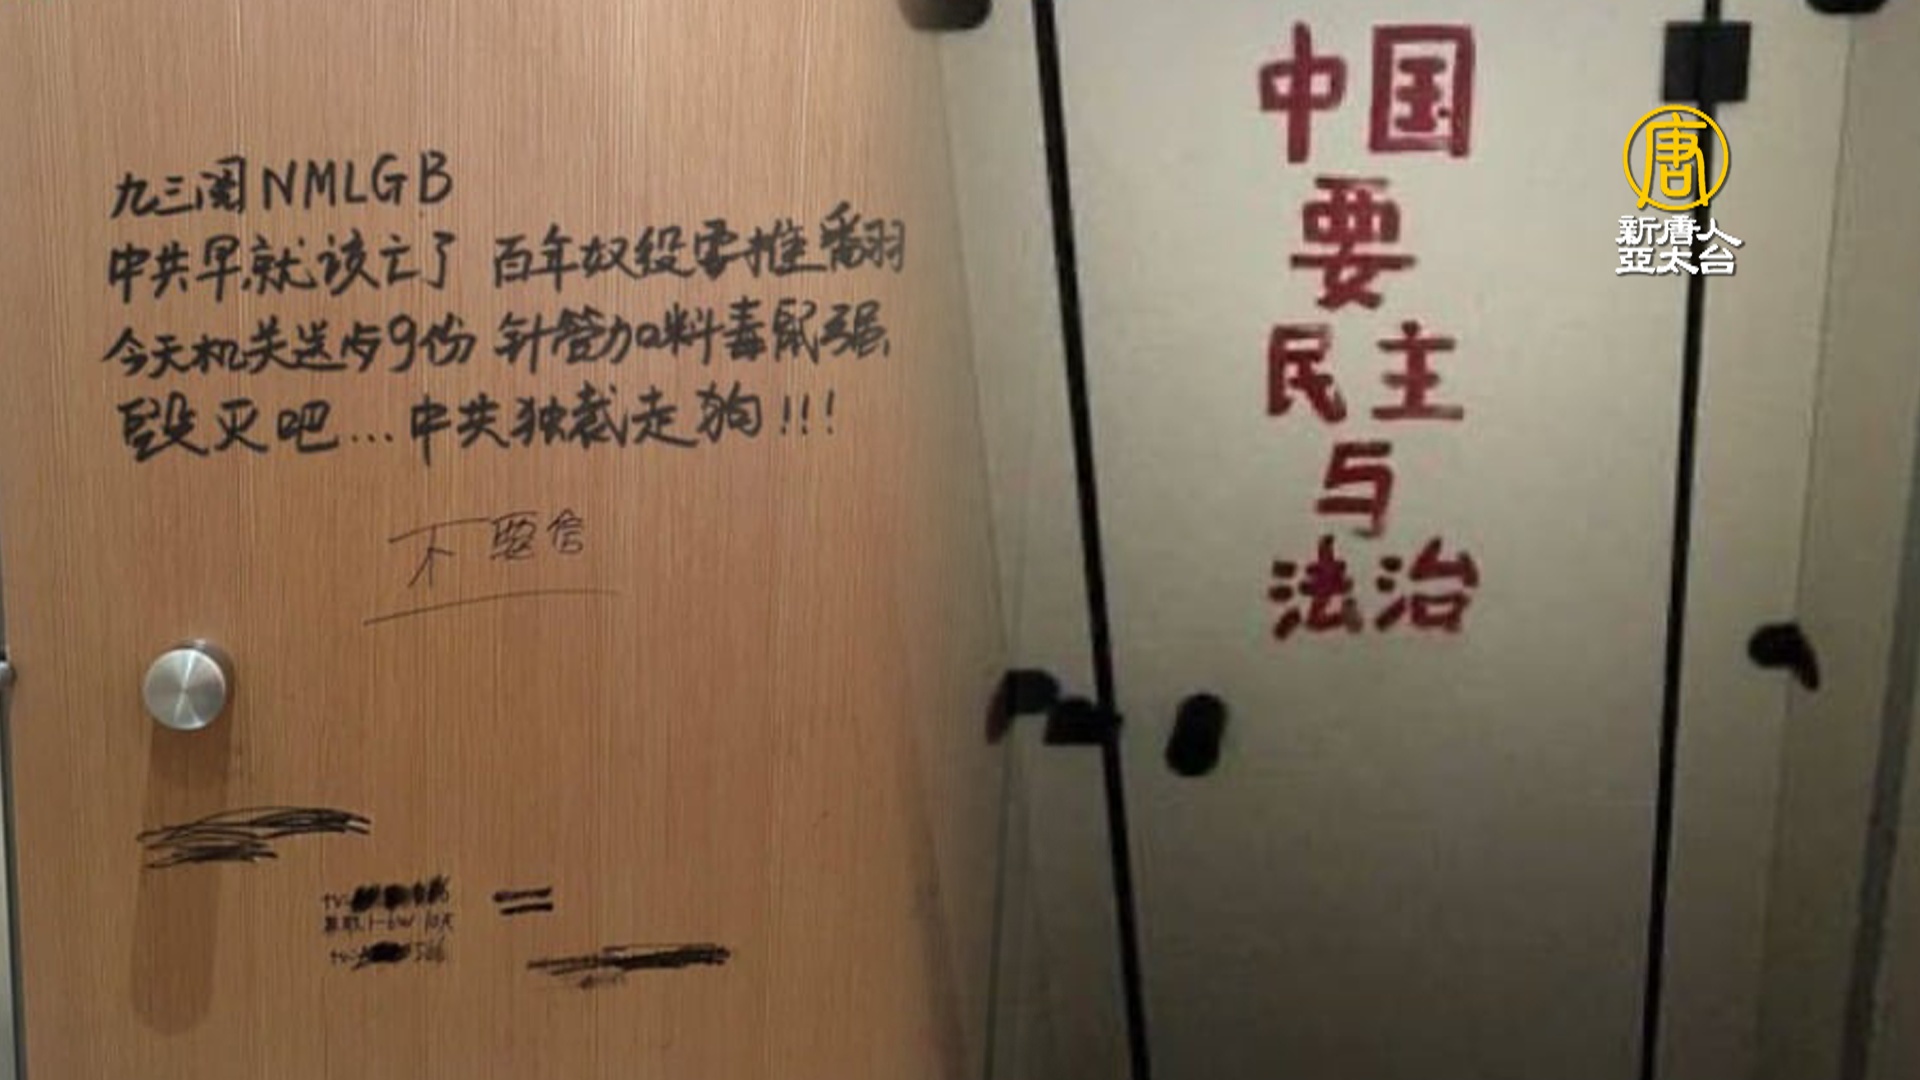 九三阅NMLGB
中共早就该亡了 百年奴役要推翻
今天机关送与9份 针管加料毒鼠强
毁灭吧...中共独裁走狗!!!
不要信
中国
要
民主
与
法治
新唐人
亞太台